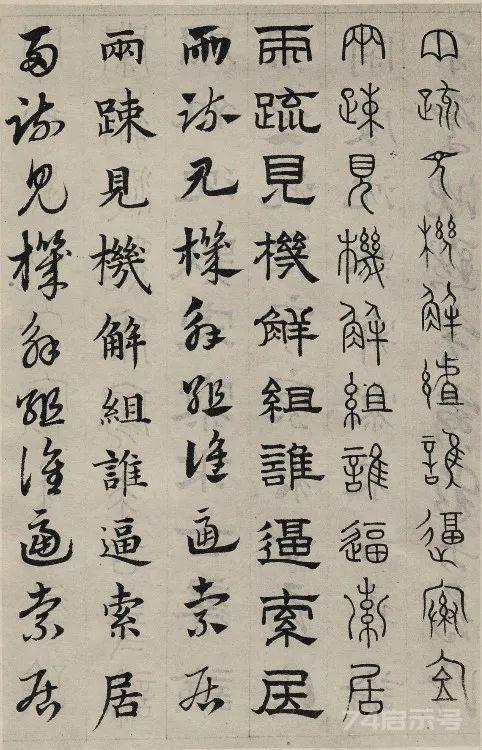 兩疏見機解組誰逼索居
兩疎見機解組誰逼索居
兩疏見機解組誰逼索居
兩疏見機解組誰逼索居
兩疎見機解組誰逼索居
兩疏見機解組誰逼索居
74启示号